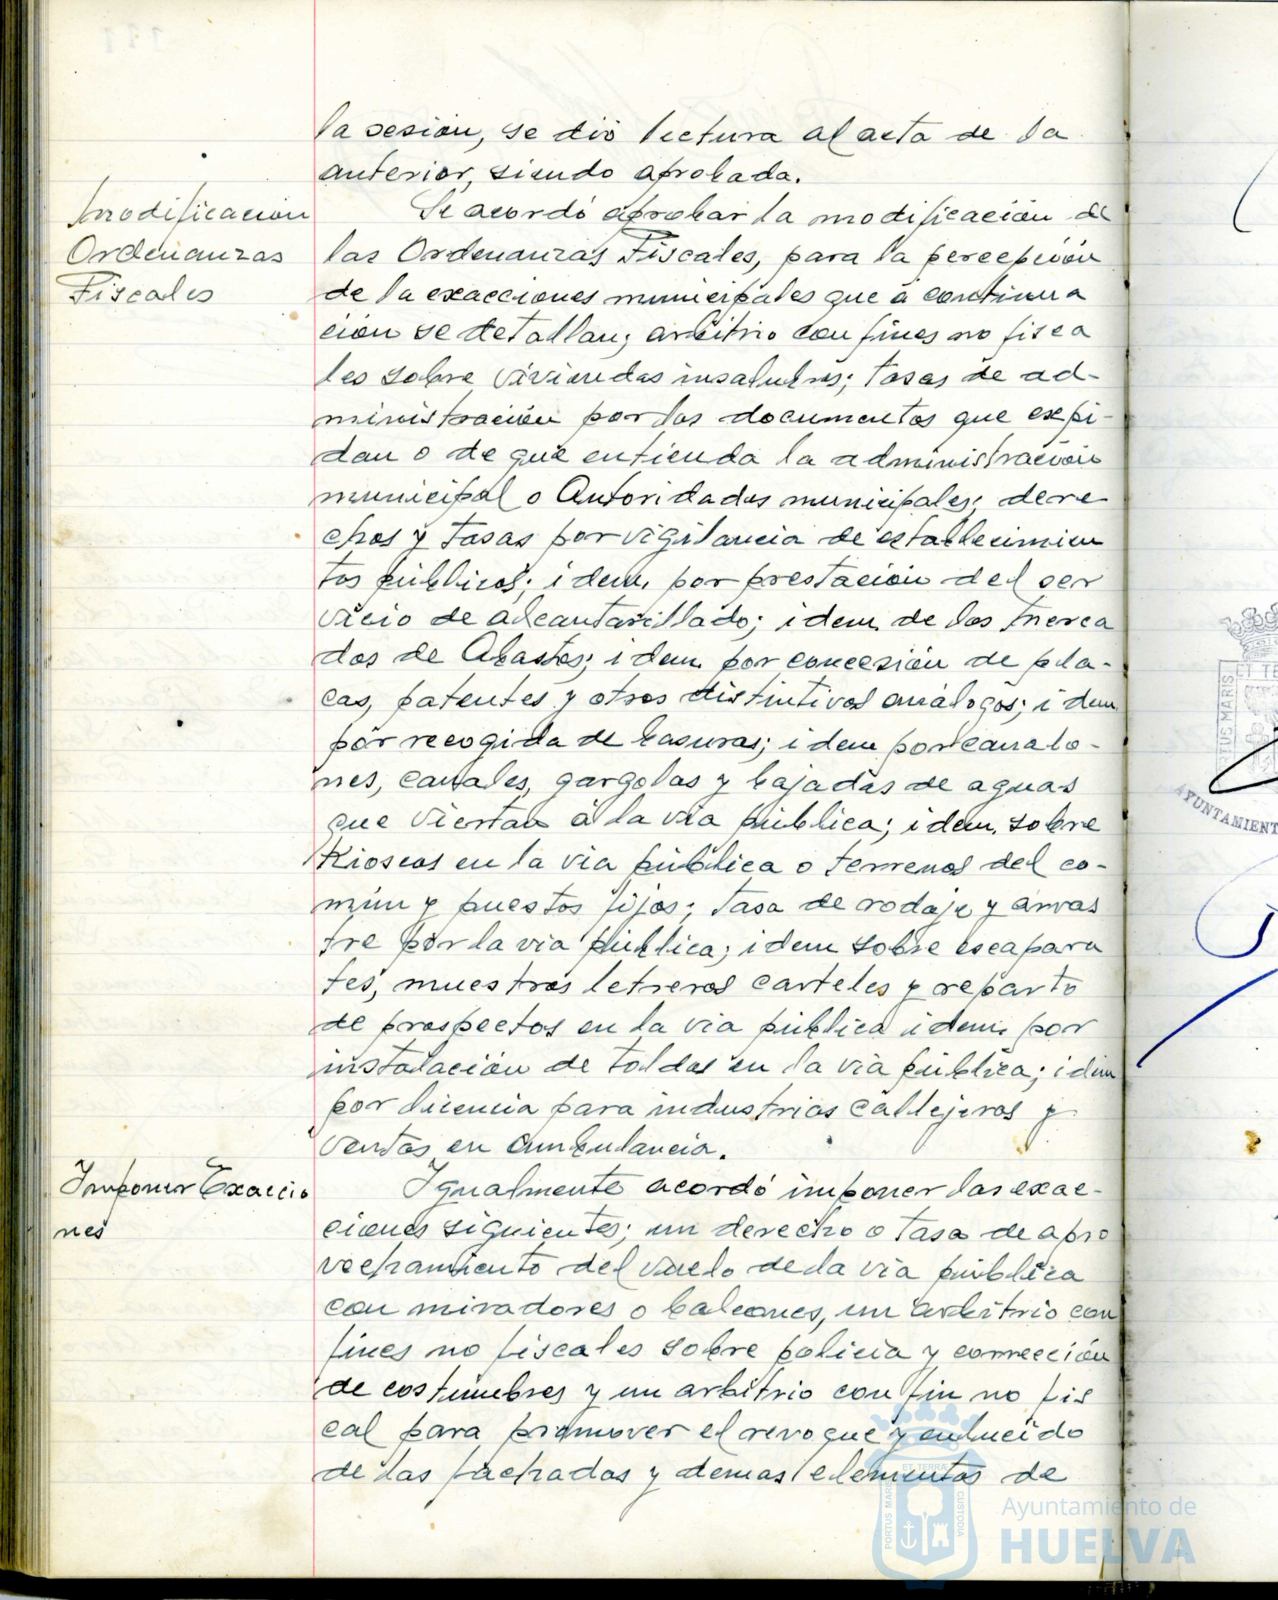 la sesión, se dió lectura al acta de la
anterior, siendo aprobada.
Modificación
Ordenanzas
Fiscales
Se acordó aprobar la modificación de
las Ordenanzas Fiscales, para la percepción
de la exacciones municipales que á continua
ción se detallan; arbitrio con fines no fisca
les sobre viviendas insalubres; tasas de ad-
ministración por los documentos que expi-
dan o de que entienda la administración
municipal o Autoridades municipales; dere
chos y tasas por vigilancia de establecimien
tos públicos; idem, por prestación del ser
vicio de alcantarillado; idem de los merca
dos de Abastos; idem por concesión de pla-
cas, patentes y otros distintivos análogos; idem
por recogida de basuras; idem por canalo-
nes, canales, gargolas y bajadas de aguas
que viertan á la via pública; idem, sobre
Kioscos en la via pública o terrenos del co-
mún y puestos fijos; tasa de rodaje y arras
tre por la via pública; idem sobre escapara
tes, muestras letreros carteles y reparto
de prospectos en la via pública idem por
instalación de toldos en la via pública; idem
por licencia para industrias callejeras y
ventas en ambulancia.
Imponer Exaccio
nes
Igualmente acordó imponer las exac-
ciones siguientes; un derecho o tasa de apro
vechamiento del vuelo de la via pública
con miradores o balcones, un arbitrio con
fines no fiscales sobre policia y corrección
de costumbres y un arbitrio con fin no fis
cal para promover el revoque y enlucido
de las fachadas y demas elementos de
ET TERRA
PORTUS MARIS
CUSTODIA
Ayuntamiento de
HUELVA
ET TE
PORTUS MARIS
AYUNTAMIENT